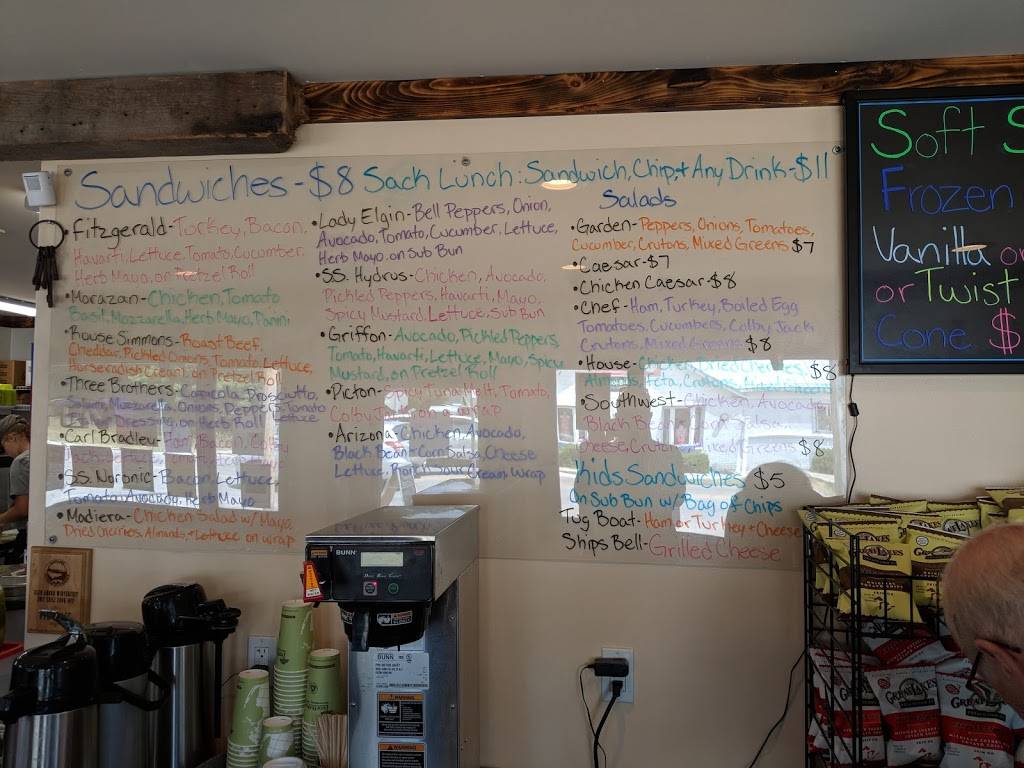 Sandwiches - $8 Sack Lunch: Sandwich, Chip, + Any Drink - $11
• Fitzgerald - Turkey, Bacon,
Havarti, Lettuce, Tomato, Cucumber,
Herb Mayo, on Pretzel Roll
• Morazan - Chicken, Tomato
Basil, Mozzarella, Herb Mayo, Panini
• Rouse Simmons - Roast Beef,
Cheddar, Pickled Onions, Tomato, Lettuce,
Horseradish Cream on Pretzel Roll
• Three Brothers - Capicola, Prosciutto,
Salami, Mozzarella, Onions, Peppers, Tomato
Dressing, on Herb Roll Lettuce
• Carl Bradley - Bacon,
• S.S. Noronic - Bacon, Lettuce,
Tomato, Avocado, Herb Mayo
• Madiera - Chicken Salad w/ Mayo,
Dried Cherries, Almonds, + Lettuce on wrap
• Lady Elgin - Bell Peppers, Onion,
Avocado, Tomato, Cucumber, Lettuce,
Herb Mayo, on Sub Bun
• SS. Hydrus - Chicken, Avocado,
Pickled Peppers, Havarti, Mayo,
Spicy Mustard, Lettuce, Sub Bun
• Griffon - Avocado, Pickled Peppers,
Tomato, Havarti, Lettuce, Mayo, Spicy
Mustard, on Pretzel Roll
• Picton - Spicy Tuna Melt, Tomato,
Colby Jack on a wrap
• Arizona - Chicken, Avocado,
Black Bean + Corn Salsa, Cheese
Lettuce, Sour Cream, Wrap
Salads
• Garden - Peppers, Onions, Tomatoes,
Cucumber, Crutons, Mixed Greens $7
• Caesar - $7
• Chicken Caesar - $8
• Chef - Ham, Turkey, Boiled Egg
Tomatoes, Cucumbers, Colby Jack
Crutons, Mixed Greens $8
• House - Chicken, Dried Cherries,
Almonds, Feta, Crutons, Mixed Greens $8
• Southwest - Chicken, Avocado,
Black Bean + Corn Salsa,
Cheese, Crutons, Mixed Greens $8
Kids Sandwiches $5
On Sub Bun w/ Bag of Chips
Tug Boat - Ham or Turkey + Cheese
Ships Bell - Grilled Cheese
Soft S
Frozen
Vanilla or
or Twist
Cone $
BUNN
BUNN
WARNING
WARNING